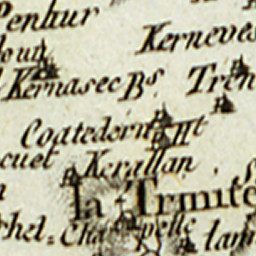 Penhur
Kerneves
Kernasec Bs. Tren
Coatedern Ht
cuet Kerallan
la Trinité
Chapelle